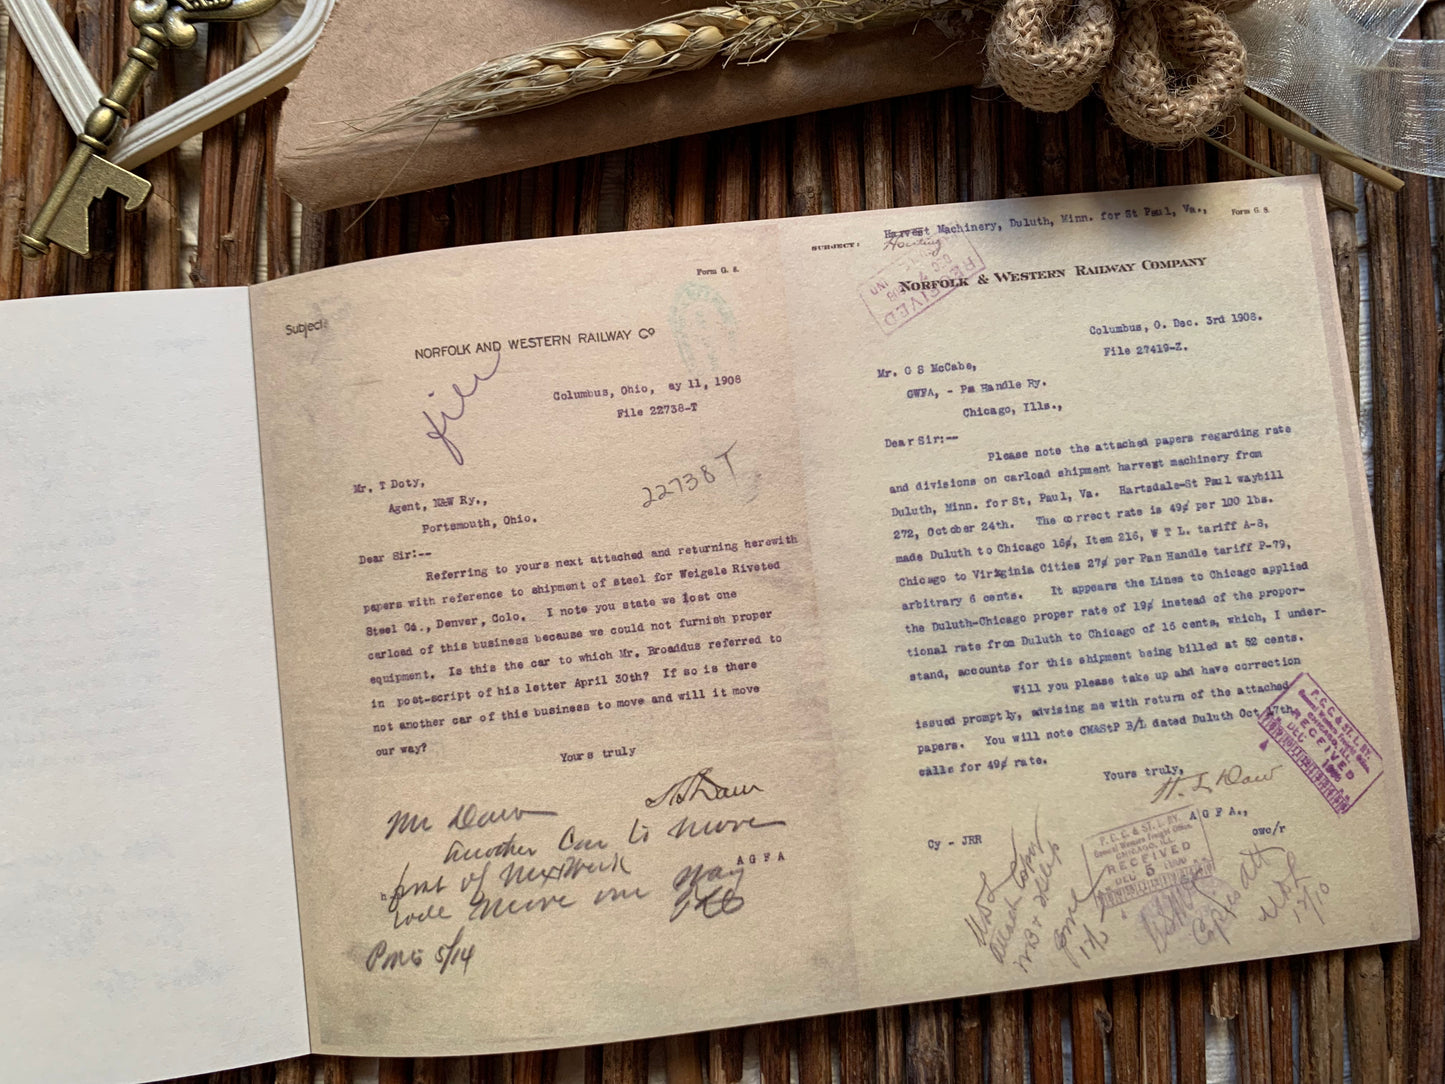 Form G. 8.
Subject
NORFOLK AND WESTERN RAILWAY Co
file
Columbus, Ohio, ay 11, 1908
File 22738-T
22738 T
Mr. T Doty,
Agent, N&W Ry.,
Portsmouth, Ohio.
Dear Sir:--
Referring to yours next attached and returning herewith
papers with reference to shipment of steel for Weigele Riveted
Steel Co., Denver, Colo. I note you state we lost one
carload of this business because we could not furnish proper
equipment. Is this the car to which Mr. Broaddus referred to
in post-script of his letter April 30th? If so is there
not another car of this business to move and will it move
our way?
Yours truly
Mr Daw
another Car to move
first of next week
will move our way
A G F A
5/14
SUBJECT: Harvest Machinery, Duluth, Minn. for St Paul, Va.,
Form G. 8.
RECEIVED
NORFOLK & WESTERN RAILWAY COMPANY
Columbus, O. Dec. 3rd 1908.
File 27419-Z.
Mr. G S McCabe,
GWFA, - Pan Handle Ry.
Chicago, Ills.,
Dear Sir:--
Please note the attached papers regarding rate
and divisions on carload shipment harvest machinery from
Duluth, Minn. for St, Paul, Va. Hartsdale-St Paul waybill
272, October 24th. The correct rate is 49¢ per 100 lbs.
made Duluth to Chicago 16¢, Item 216, W T L. tariff A-8,
Chicago to Virginia Cities 27¢ per Pan Handle tariff P-79,
arbitrary 6 cents. It appears the Lines to Chicago applied
the Duluth-Chicago proper rate of 19¢ instead of the propor-
tional rate from Duluth to Chicago of 16 cents, which, I under-
stand, accounts for this shipment being billed at 52 cents.
Will you please take up and have correction
issued promptly, advising me with return of the attached
papers. You will note CMAStP B/L dated Duluth Oct. 17th
calls for 49¢ rate.
Yours truly,
H. L Daw
A G F A.,
Cy - JRR
owc/r
P. C. C. & ST. L. RY.
General Western Freight Office.
CHICAGO, ILL.
RECEIVED
DEC 5 1908
P. C. C. & ST. L. RY.
General Western Freight Office.
CHICAGO, ILL.
DEC
RECEIVED
1908
12/10